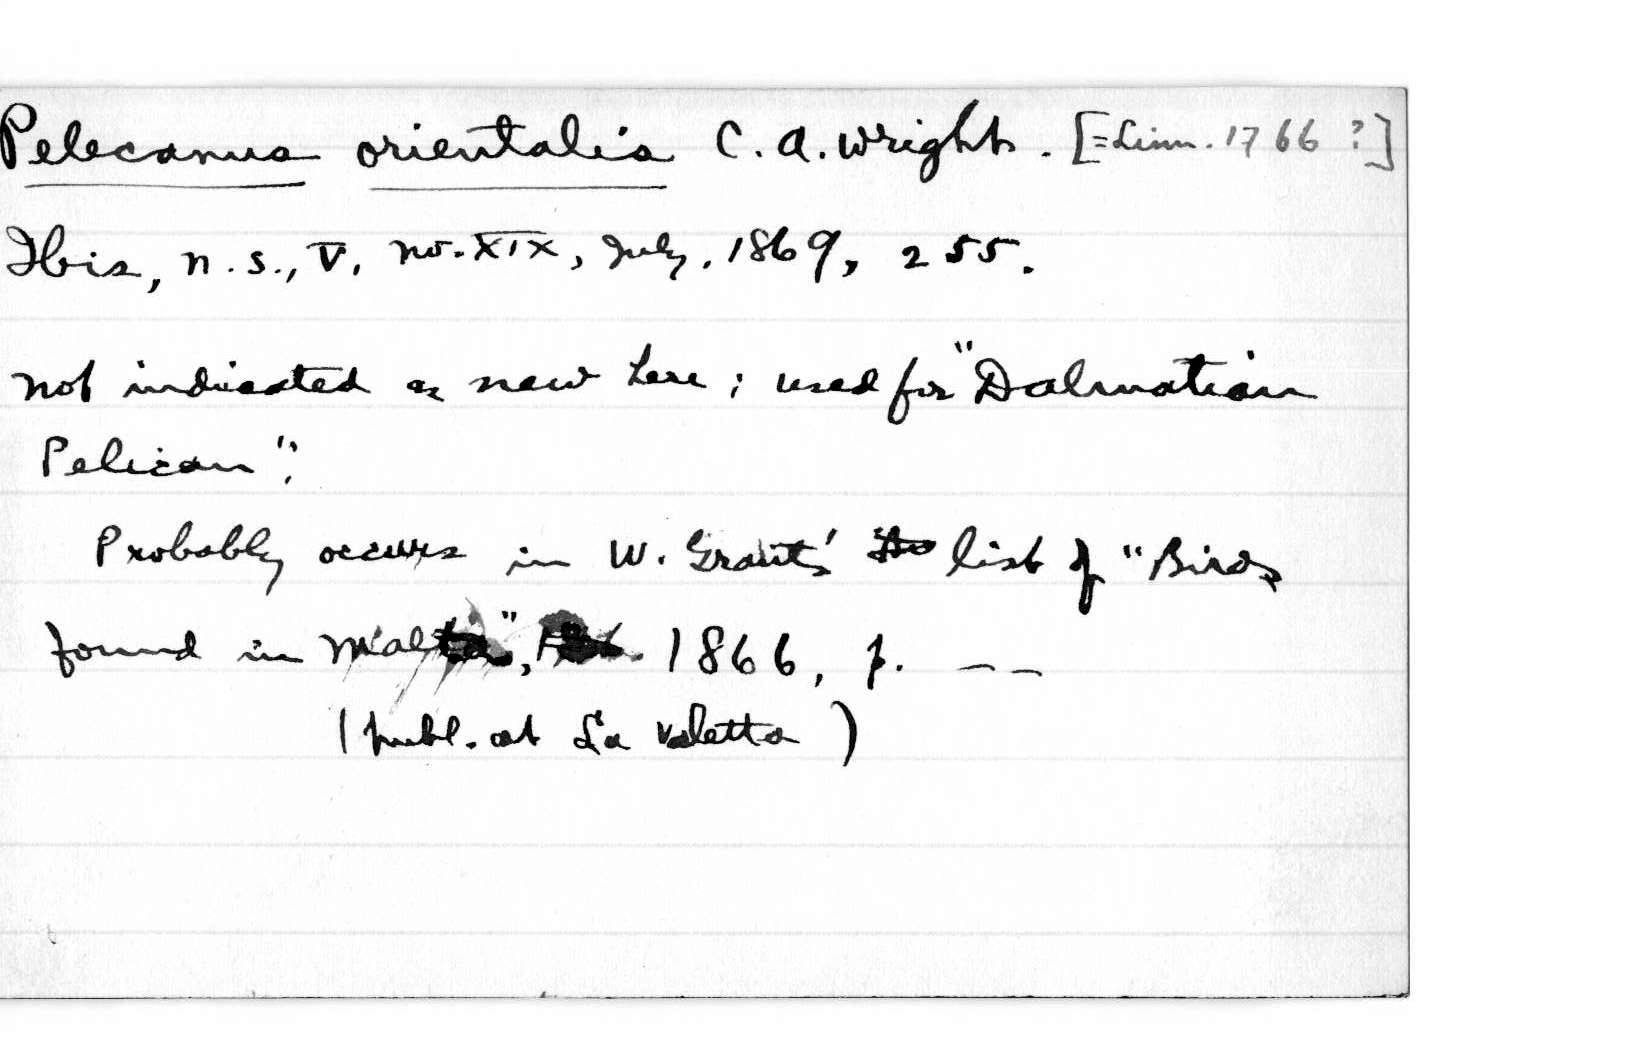 Pelecanus orientalis C. A. Wright. [=Linn. 1766 ?]
Ibis, n.s., V, no. XIX, July, 1869, 255.
not indicated as new here; used for "Dalmatian
Pelican".
Probably occurs in W. Grant's list of "Birds
found in Malta", 1866, p. — —
(publ. at La Valetta)